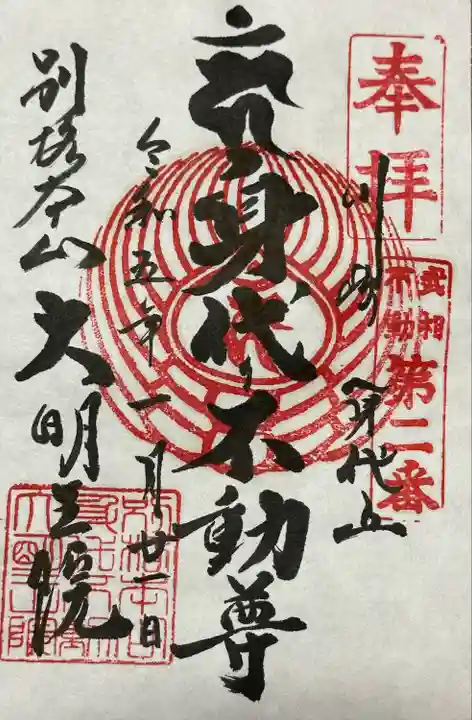 奉拝
武相
不動
第二番
川崎
身代り不動尊
令和五年一月廿一日
別格本山
大明王院